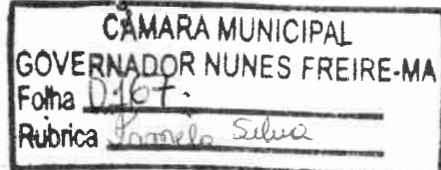 CÂMARA MUNICIPAL
GOVERNADOR NUNES FREIRE-MA
Folha 0167.
Rúbrica Pamela Silva